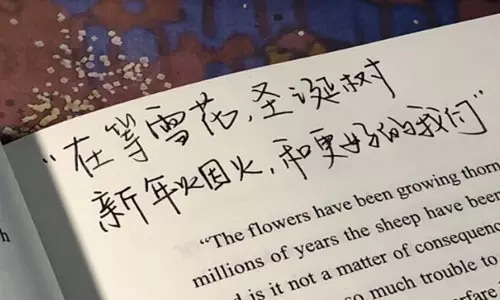 “在等雪花，圣诞树
新年烟火，和更好的我们”
“The flowers have been growing thorn
millions of years the sheep have been
is it not a matter of consequenc
much trouble to